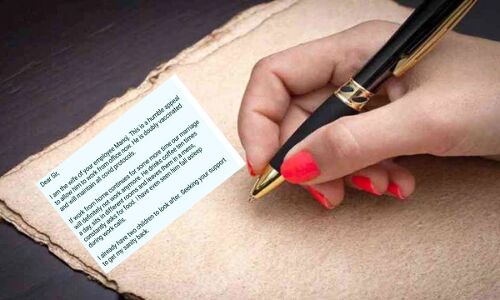 Dear Sir,
I am the wife of your employee Manoj. This is a humble appeal
to allow him to work from office now. He is doubly vaccinated
and will maintain all covid protocols.
If work from home continues for some more time our marriage
will definitely not work anymore. He drinks coffee ten times
a day, sits in different rooms and leaves them in a mess,
constantly asks for food. I have even seen him fall asleep
during work calls.
I already have two children to look after. Seeking your support
to get my sanity back.